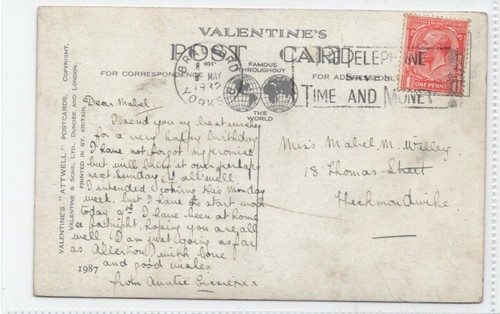 VALENTINE'S
POST CARD
FAMOUS THROUGHOUT
THE WORLD
FOR CORRESPONDENCE
FOR ADDRESS ONLY
BRADFORD
MAY
YORKS
THE TELEPHONE
SAVES
TIME AND MONEY
ONE PENNY
VALENTINE'S "ATTWELL" POSTCARDS. COPYRIGHT.
VALENTINE & SONS, LTD., DUNDEE AND LONDON.
PRINTED IN GT. BRITAIN.
Dear Mabel
I send you my best wishes
for a very happy birthday
I have not forgot my promise
but will bring it over perhaps
next Sunday if all well
I intended coming this Monday
week, but I have to start work
today 9th I have been at home
a fortnight, hoping you are all
well (I am just going as far
as Allerton) with love
and good wishes
from Auntie xxx
1987
Miss Mabel M. Willey
18 Thomas Street
Heckmondwike